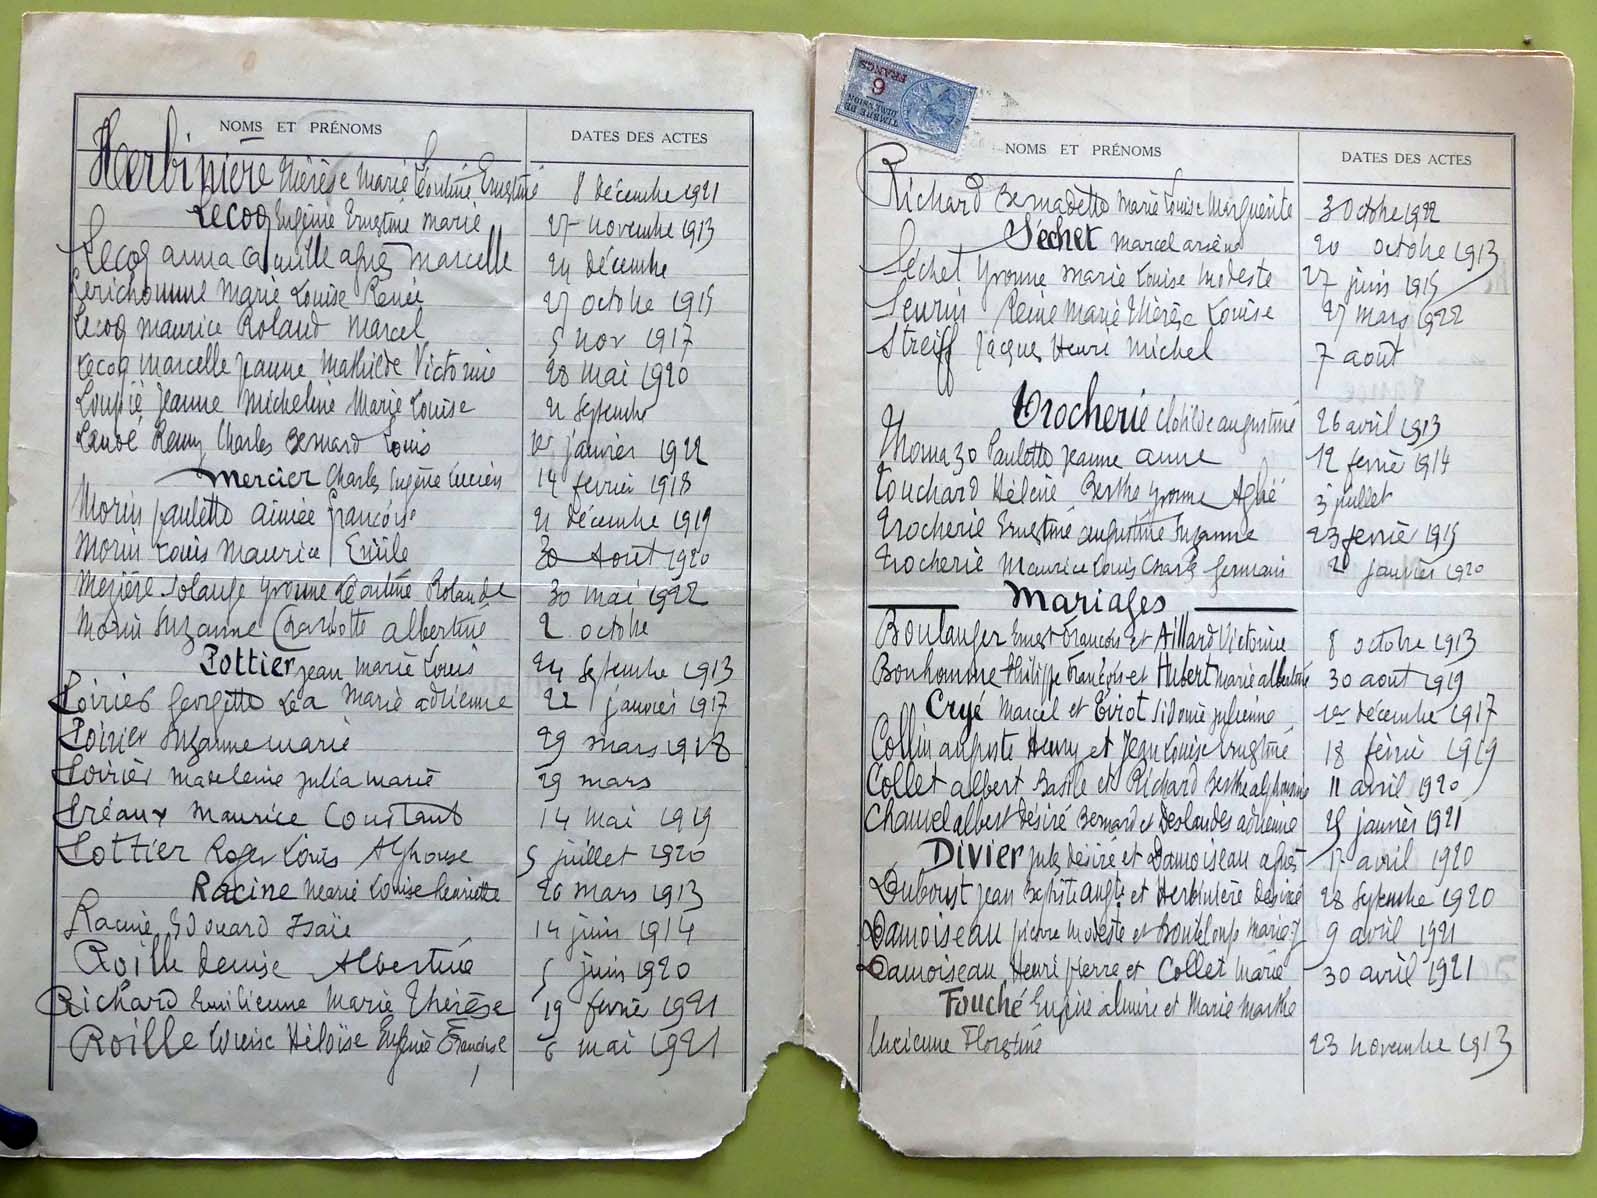 NOMS ET PRÉNOMS
DATES DES ACTES
Herbinière Thérèse Marie Léontine Ernestine 8 décembre 1921
Lecoq Eugénie Ernestine Marie 27 novembre 1913
Lecoq anna Camille agnès Marcelle 24 décembre
Lerichomme Marie Louise Renée 27 octobre 1915
Lecoq Maurice Roland Marcel 5 nov 1917
Lecoq Marcelle Jeanne Mathilde Victorine 28 mai 1920
Loupié Jeanne Micheline Marie Louise 21 Septembre
Landé Remy Charles Bernard Louis 1er janvier 1922
Mercier Charles Eugène Lucien 14 fevrier 1918
Morin paulette aimée françoise 21 décembre 1919
Morin Louis Maurice Emile 30 Août 1920
Mezière Solange Yvonne Léontine Rolande 30 mai 1922
Morin Suzanne Charlotte albertine 2 octobre
Pottier Jean Marie Louis 24 Septembre 1913
Poirier Georgette Léa Marie adrienne 22 janvier 1917
Poirier Suzanne marie 29 mars 1918
Poirier Madeleine Julia marie 29 mars
Préaux Maurice Constant 14 mai 1919
Pottier Roger Louis Alphonse 5 juillet 1920
Racine Marie Louise henriette 26 mars 1913
Racine Edouard Isaïe 14 juin 1914
Roille Denise Albertine 5 juin 1920
Richard Emilienne Marie Thérèse 19 fevrié 1921
Roille Louise Héloïse Eugénie 6 mai 1921
TIMBRE DE
DIMENSION
6
FRANCS
NOMS ET PRÉNOMS
DATES DES ACTES
Richard Bernadette Marie Louise Marguerite 3 Octobre 1922
Séchet Marcel arsène 20 octobre 1913
Séchet Yvonne Marie Louise Modeste 27 juin 1915
Seurin Reine Marie Thérèse Louise 27 mars 1922
Streiff Jacques Henri Michel 7 août
Trocherie Clotilde augustine 26 avril 1913
Thomazo Paulette Jeanne anne 12 fevrié 1914
Touchard Hélène Berthe Yvonne 3 juillet
Trocherie Ernestine augustine Suzanne 23 fevrié 1915
Trocherie Maurice Louis Charles Germain 20 janvier 1920
Mariages
Boulanger Ernest François et Aillard Victorine 8 octobre 1913
Bonhomme Philippe François et Hubert Marie albertine 30 août 1919
Cryé Marcel et Tirot Sidonie Julienne 1er décembre 1917
Collin auguste Henry et Jean Louise Ernestine 18 févrié 1919
Collet albert Basile et Richard Berthe alphonsine 11 avril 1920
Chauvel albert Désiré Bernard et Deslandes adrienne 25 janvier 1921
Divier Jules Désiré et Damoiseau agnès 17 avril 1920
Duboust Jean Baptiste auguste et Herbinière Désirée 28 Septembre 1920
Damoiseau pierre Modeste et 9 avril 1921
Damoiseau Henri pierre et Collet Marie 30 avril 1921
Fouché Eugène almire et Marie Marthe
Lucienne Florestine 23 novembre 1913